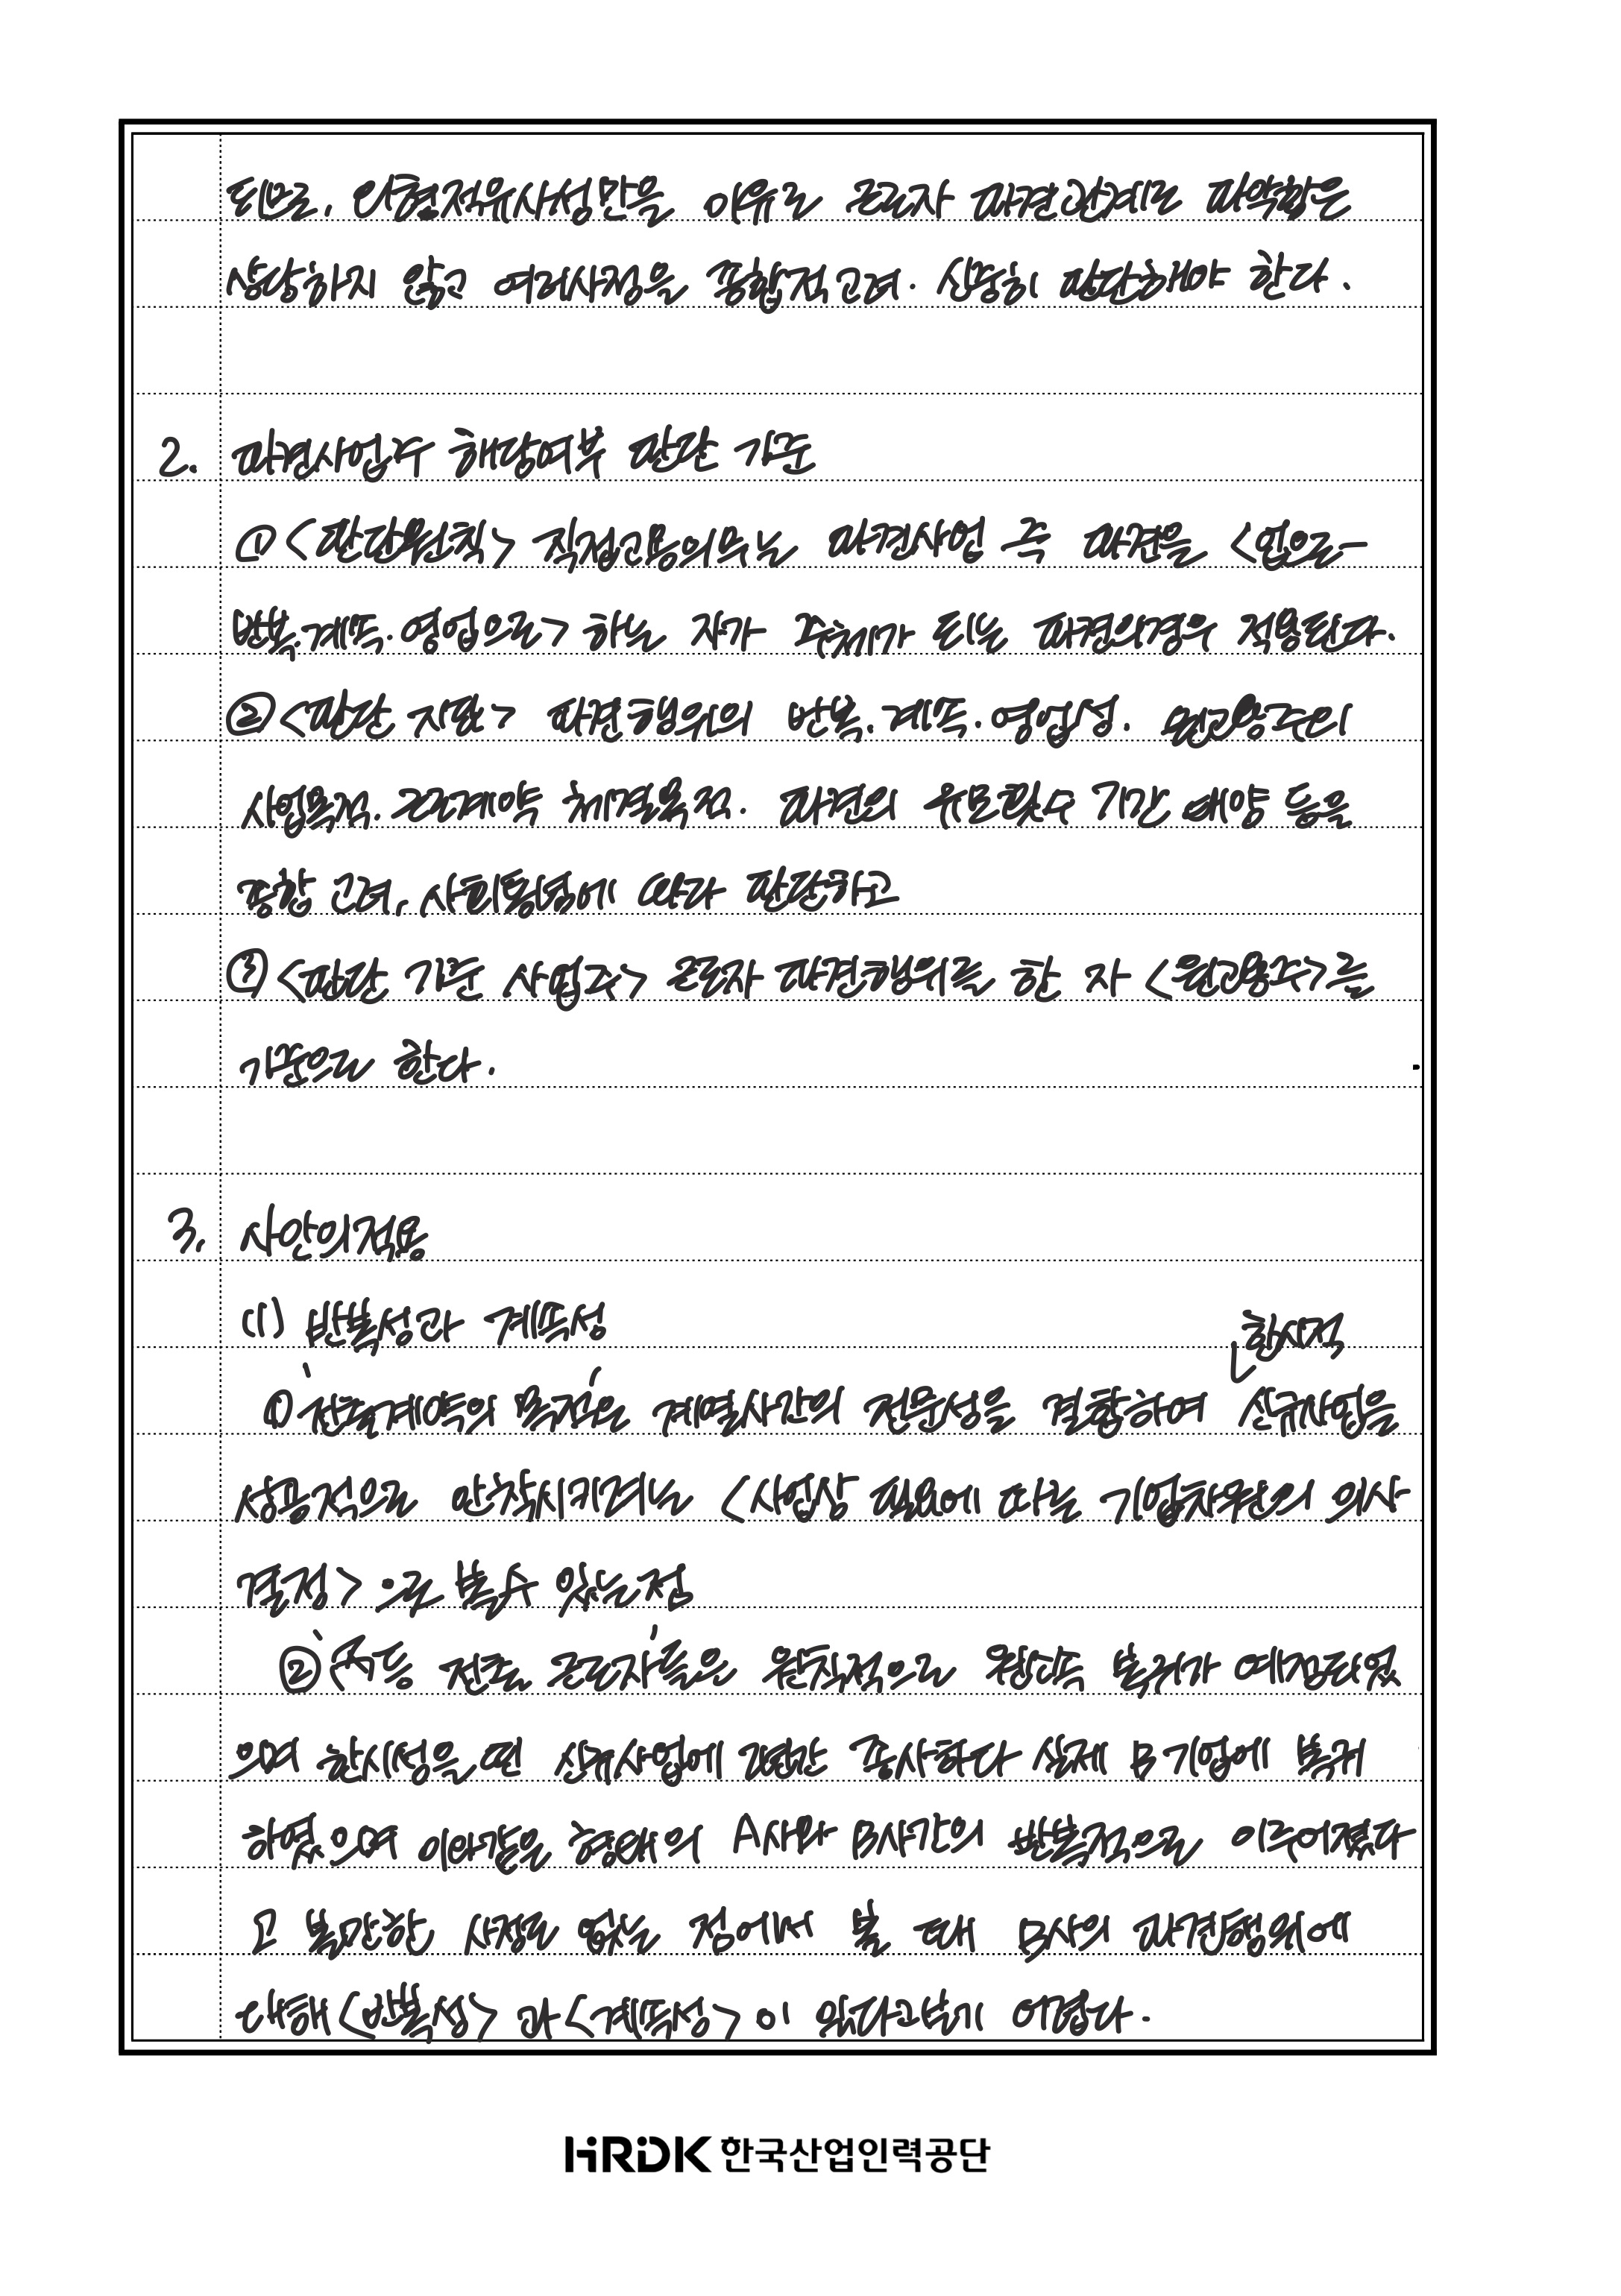 되므로, 외형적유사성만을 이유로 근로자 파견관계로 파악함은
상당하지 않고 여러사정을 종합적 고려. 신중히 판단해야 한다.
2. 파견사업주 해당여부 판단 기준
① <판단원칙> 직접고용의무는 파견사업주 파견을 <업으로-
반복.계속.영업으로> 하는 자가 주체가 되는 파견의경우 적용된다.
② <판단 지표> 파견행위의 반복.계속.영업성. 원고용주의
사업목적.근로계약 체결목적. 파견의 규모횟수 기간 태양 등을
종합 고려, 사회통념에 따라 판단하고
③ <판단 기준 사업주> 근로자 파견행위를 한 자 <원고용주>를
기준으로 한다.
3. 사안의적용
(1) 반복성과 계속성
한시적
① 전출계약의 목적은 계열사간의 전문성을 결합하여 신규사업을
성공적으로 안착시키려는 <사업상 필요에 따른 기업차원의 의사
결정> 으로 볼수 있는점
② 전출 근로자들은 원칙적으로 원소속 복귀가 예정되었
으며 한시성을 띤 신규사업에 종사하다 실제 B기업에 복귀
하였으며 이와같은 형태의 A사와 B사간의 반복적으로 이루어졌다
고 볼만한 사정도 없는 점에서 볼 때 B사의 파견행위에
대해 <반복성> 과 <계속성> 이 있다고보기 어렵다.
HRDK 한국산업인력공단